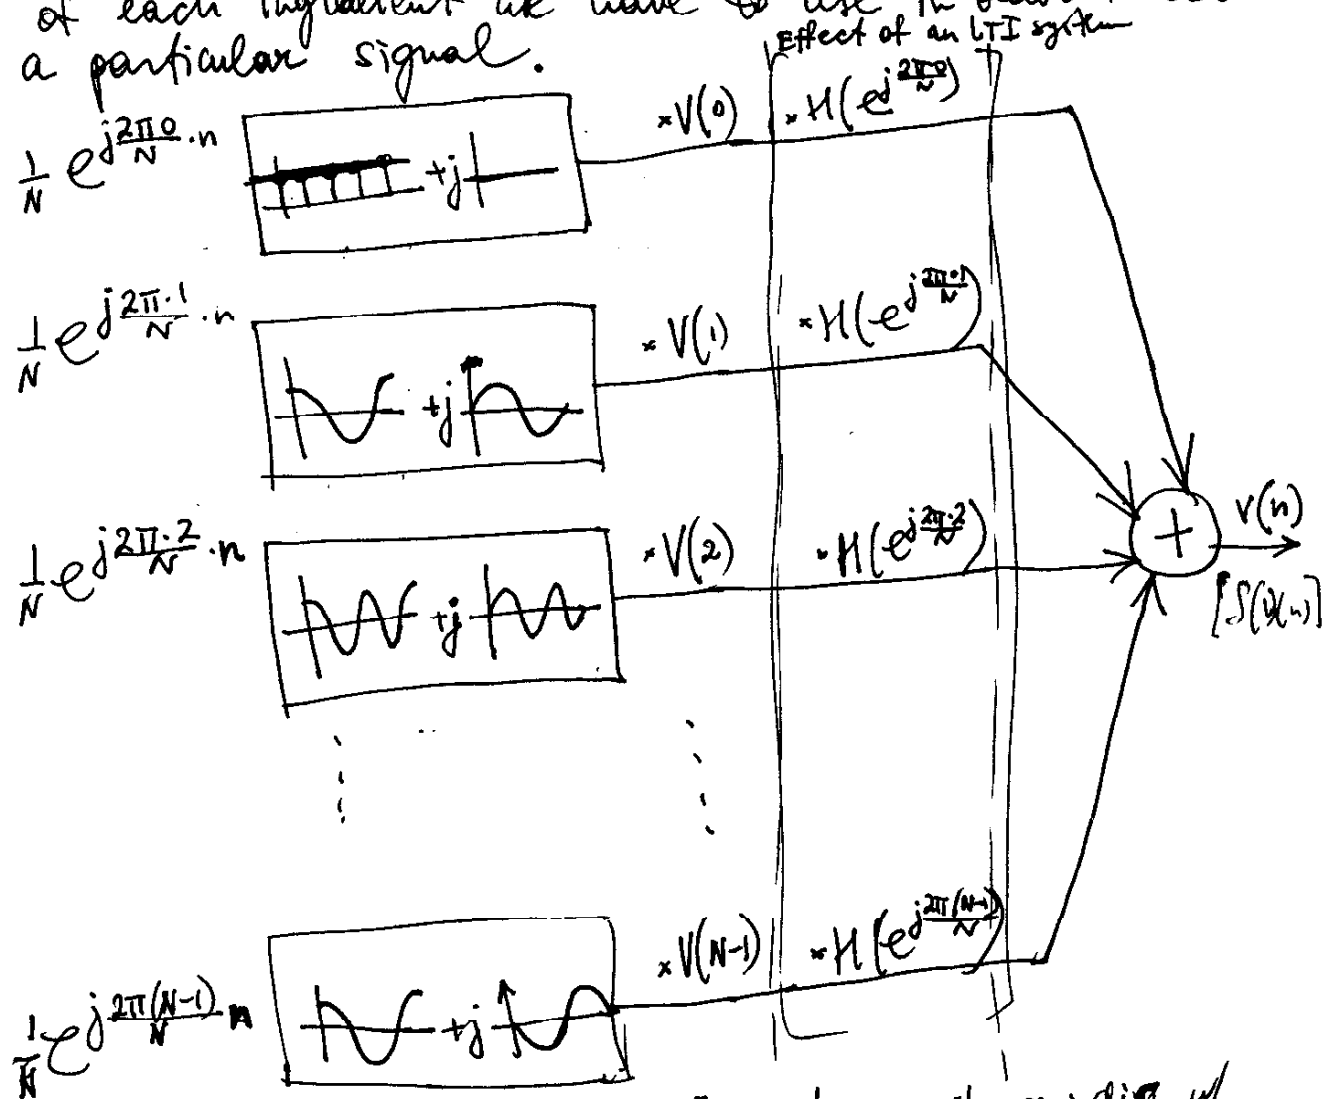 of each ingredient we have to use in
a particular signal.
Effect of an LTI system
1/N e^{j 2π0/N · n} +j ×V(0) · H(e^{j 2π0/N})
1/N e^{j 2π·1/N · n} +j ×V(1) · H(e^{j 2π·1/N})
1/N e^{j 2π·2/N · n} +j ×V(2) · H(e^{j 2π·2/N})
+ v(n)
1/N e^{j 2π(N-1)/N n} +j ×V(N-1) × H(e^{j 2π(N-1)/N})